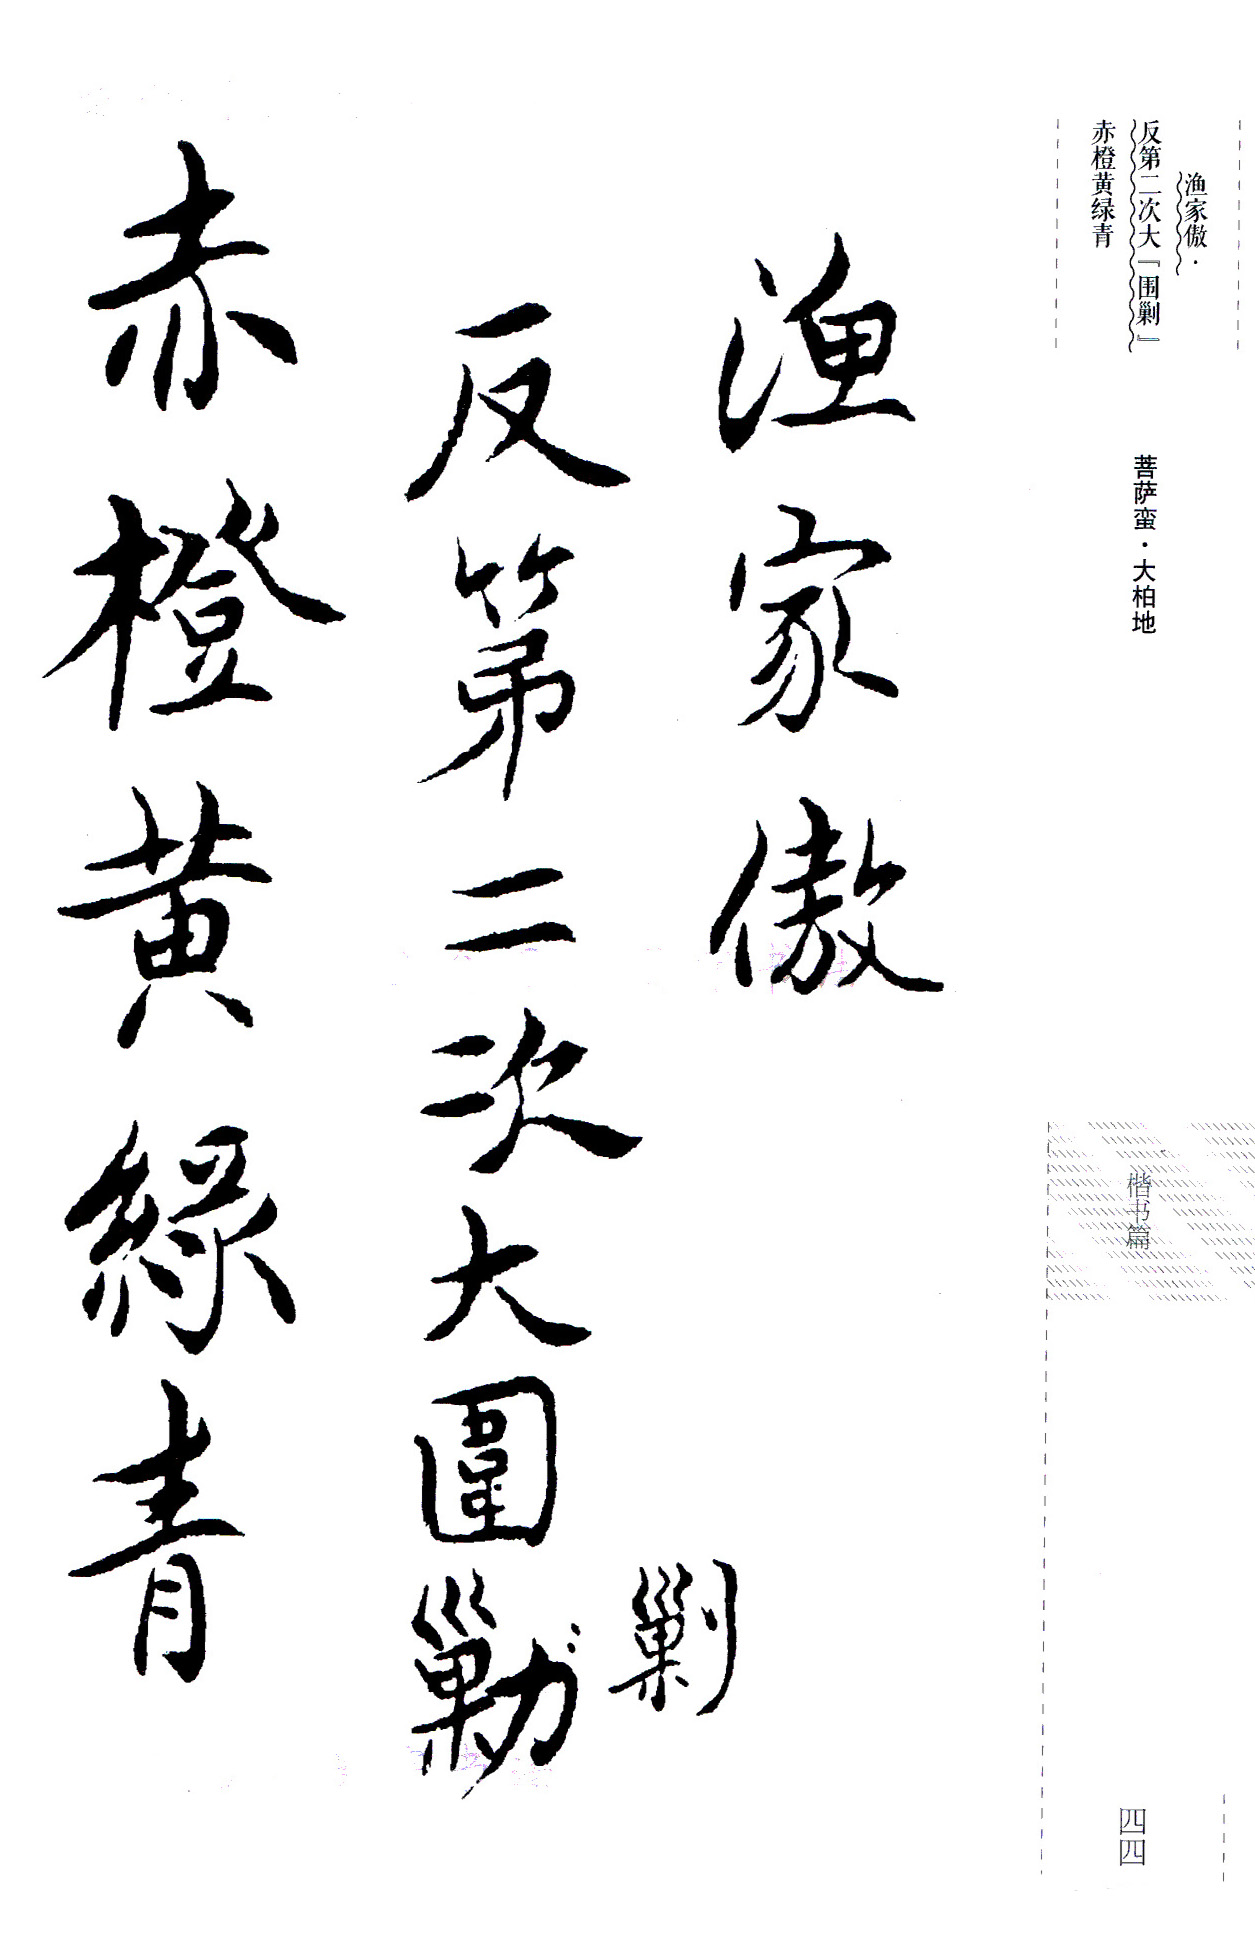 渔家傲·
反第二次大『围剿』
赤橙黄绿青
菩萨蛮·大柏地
楷书篇
四四
渔家傲
剿
反第二次大圍勦
赤橙黄綠青